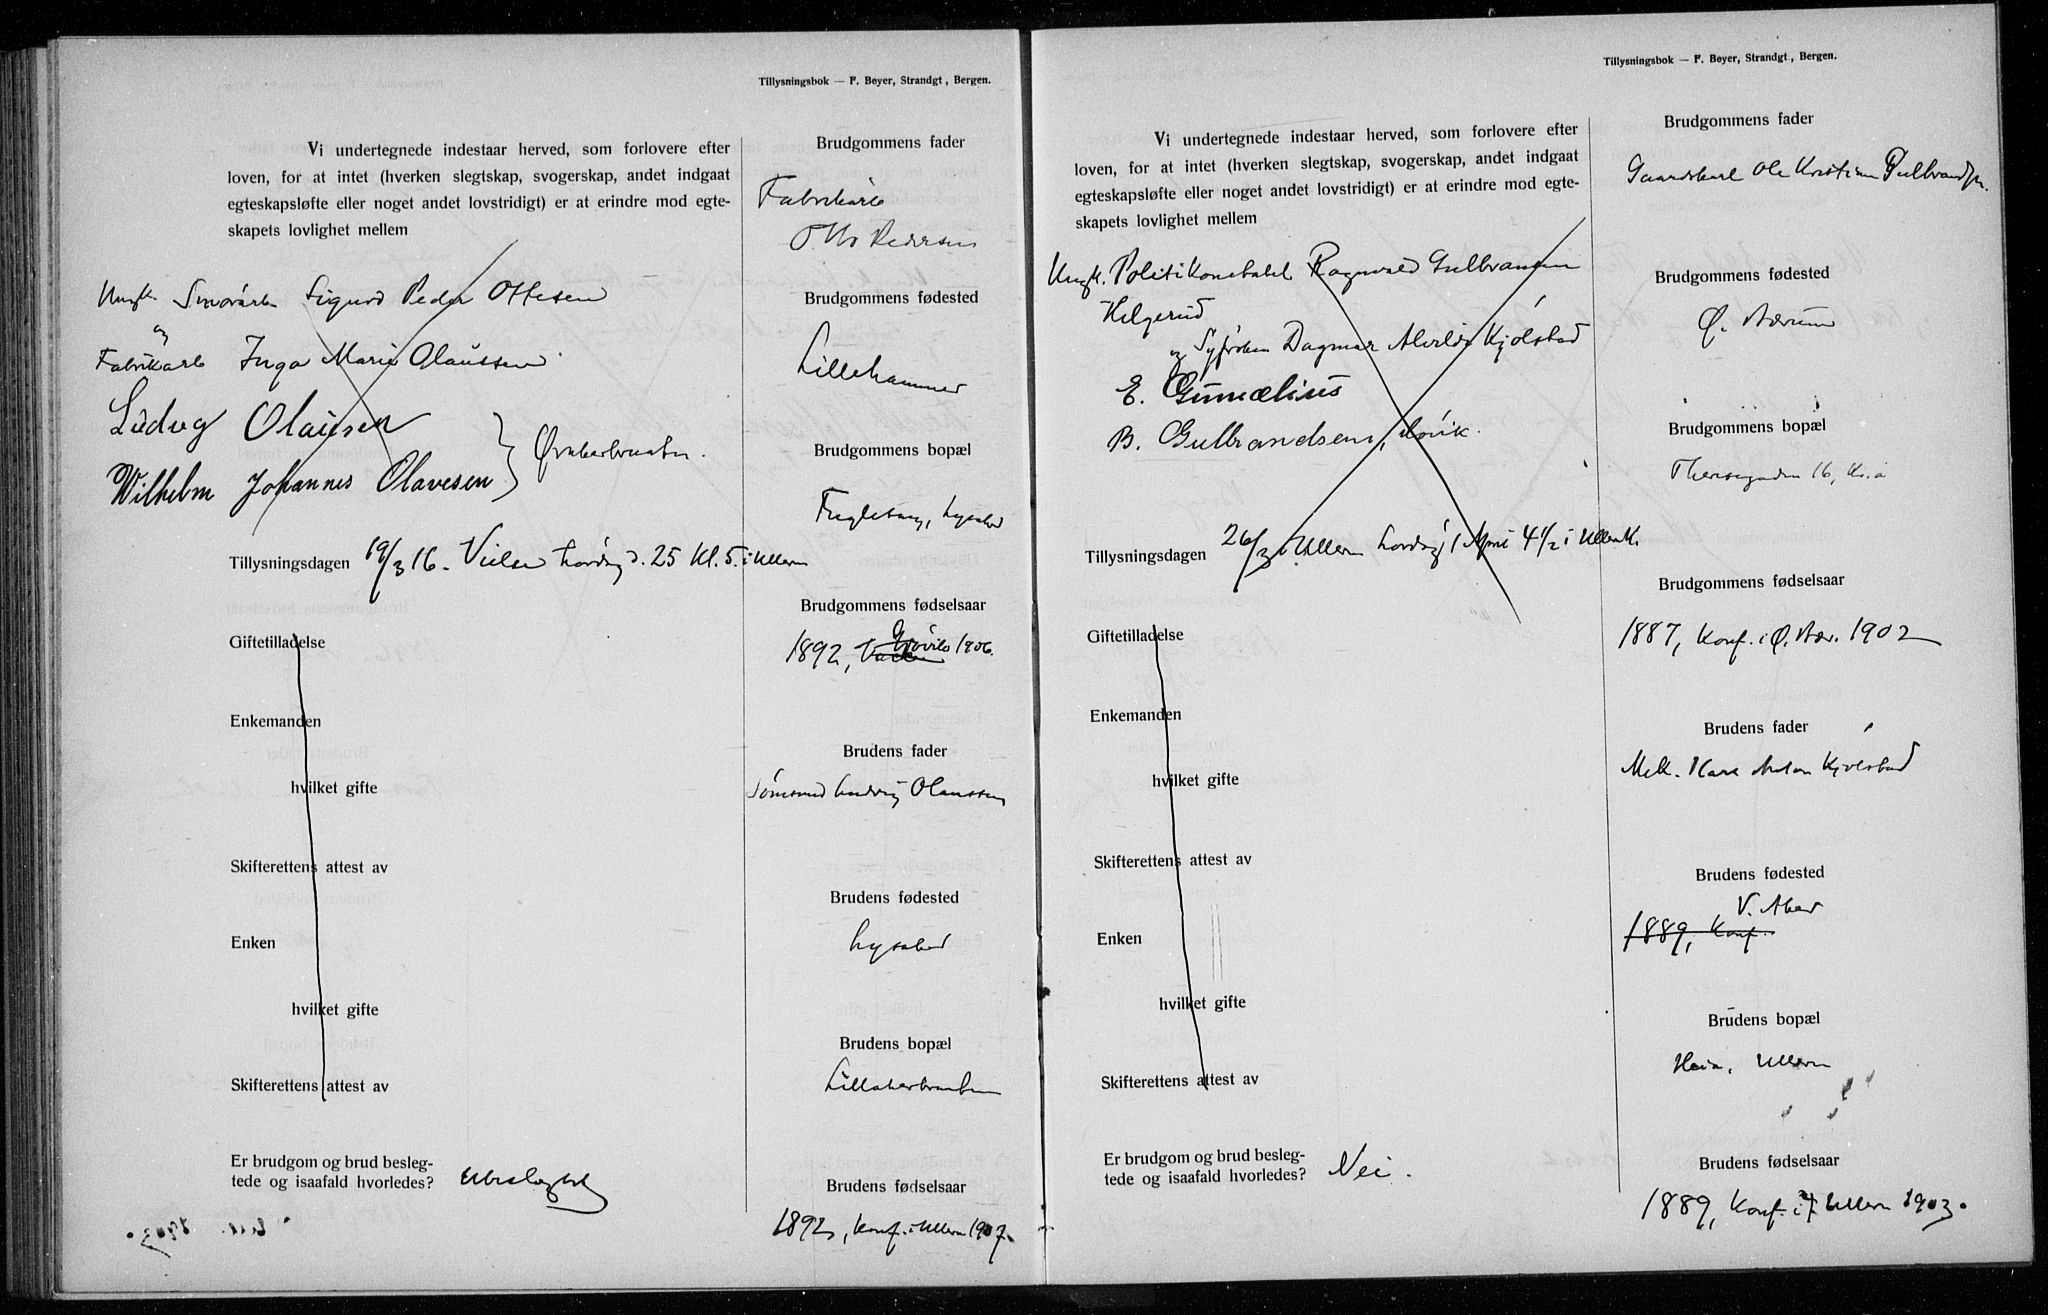 Tillysningsbok — F. Beyer, Strandgt, Bergen.
Vi undertegnede indestaar herved, som forlovere efter
loven, for at intet (hverken slegtskap, svogerskap, andet indgaat
egteskapsløfte eller noget andet lovstridigt) er at erindre mod egte-
skapets lovlighet mellem
Ungk. Smørarb. Sigurd Peder Ottesen
og
Fabrikarb. Inga Marie Olaussen
Ludvg Olausen
Wilhelm Johannes Olavesen
Tillysningsdagen 19/3 16. Vielse Lørdag d. 25 Kl. 5. i Ullern
Giftetilladelse
Enkemanden
hvilket gifte
Skifterettens attest av
Enken
hvilket gifte
Skifterettens attest av
Er brudgom og brud besleg-
tede og isaafald hvorledes? Ubeslægtet
Brudgommens fader
Fabrikarb.
Otto Pedersen
Brudgommens fødested
Lillehammer
Brudgommens bopæl
Fuglehaug, Lysaker
Brudgommens fødselsaar
1892, Gjøvik 1906.
Brudens fader
Formand Ludvig Olaussen
Brudens fødested
Lysaker
Brudens bopæl
Lillakerbruket
Brudens fødselsaar
1892, Konf. i Ullern 1907.
Tillysningsbok — F. Beyer, Strandgt, Bergen.
Vi undertegnede indestaar herved, som forlovere efter
loven, for at intet (hverken slegtskap, svogerskap, andet indgaat
egteskapsløfte eller noget andet lovstridigt) er at erindre mod egte-
skapets lovlighet mellem
Ungk. Politikonstabel Ragnvald Gulbransen
Helgerud
og Syfrøken Dagmar Alvilde Kjølstad
E. Gumælius
B. Gulbrandsen, Høvik.
Tillysningsdagen 26/3 i Ullern Lørdag 1 April 4 1/2 i Ullern K.
Giftetilladelse
Enkemanden
hvilket gifte
Skifterettens attest av
Enken
hvilket gifte
Skifterettens attest av
Er brudgom og brud besleg-
tede og isaafald hvorledes? Nei.
Brudgommens fader
Gaardskarl Ole Kristian Gulbrandsen
Brudgommens fødested
Ø. Bærum
Brudgommens bopæl
Theresegaden 16, Kr.a
Brudgommens fødselsaar
1887, Konf. i Ø. Bær. 1902
Brudens fader
Karl Anton Kjølstad
Brudens fødested
V. Aker
1889, Konf.
Brudens bopæl
Heia, Ullern
Brudens fødselsaar
1889, Konf. i Ullern 1903.